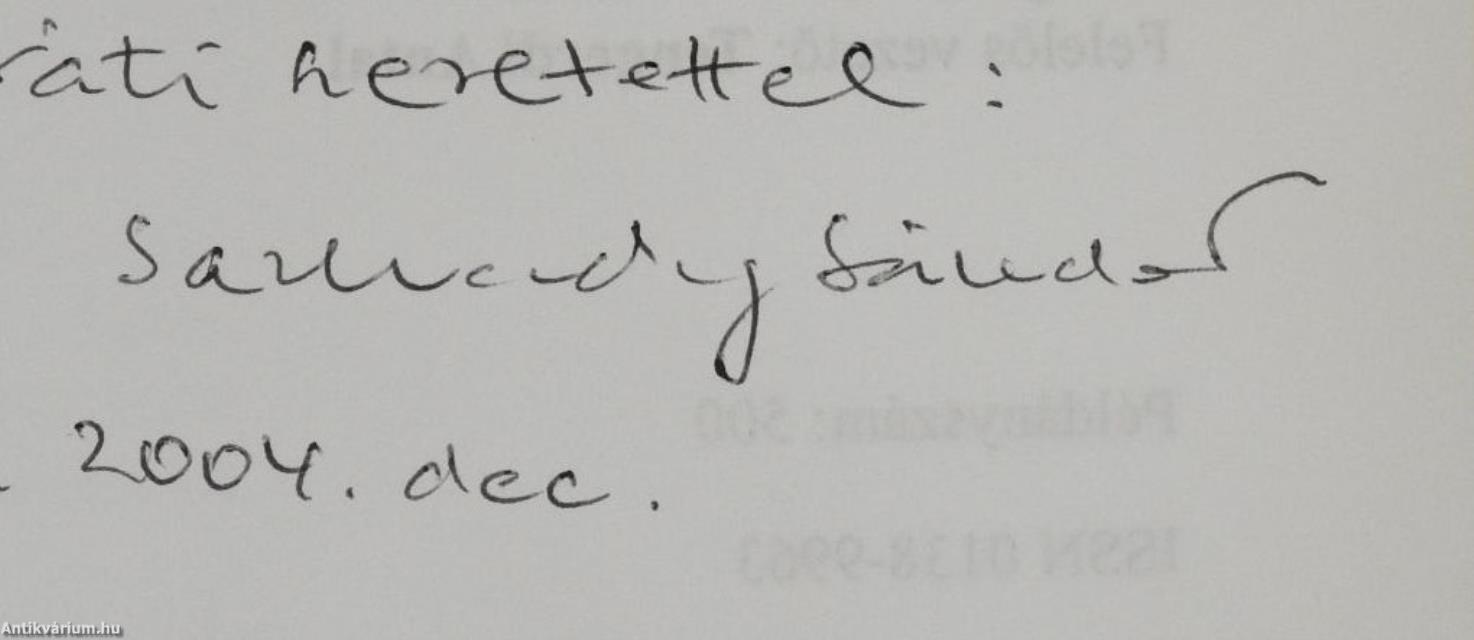 Felelős vezető: Antal
ráti szeretettel :
Sarkady Sándor
Példányszám: 500
2004. dec.
ISSN 0138-9963
Antikvárium.hu